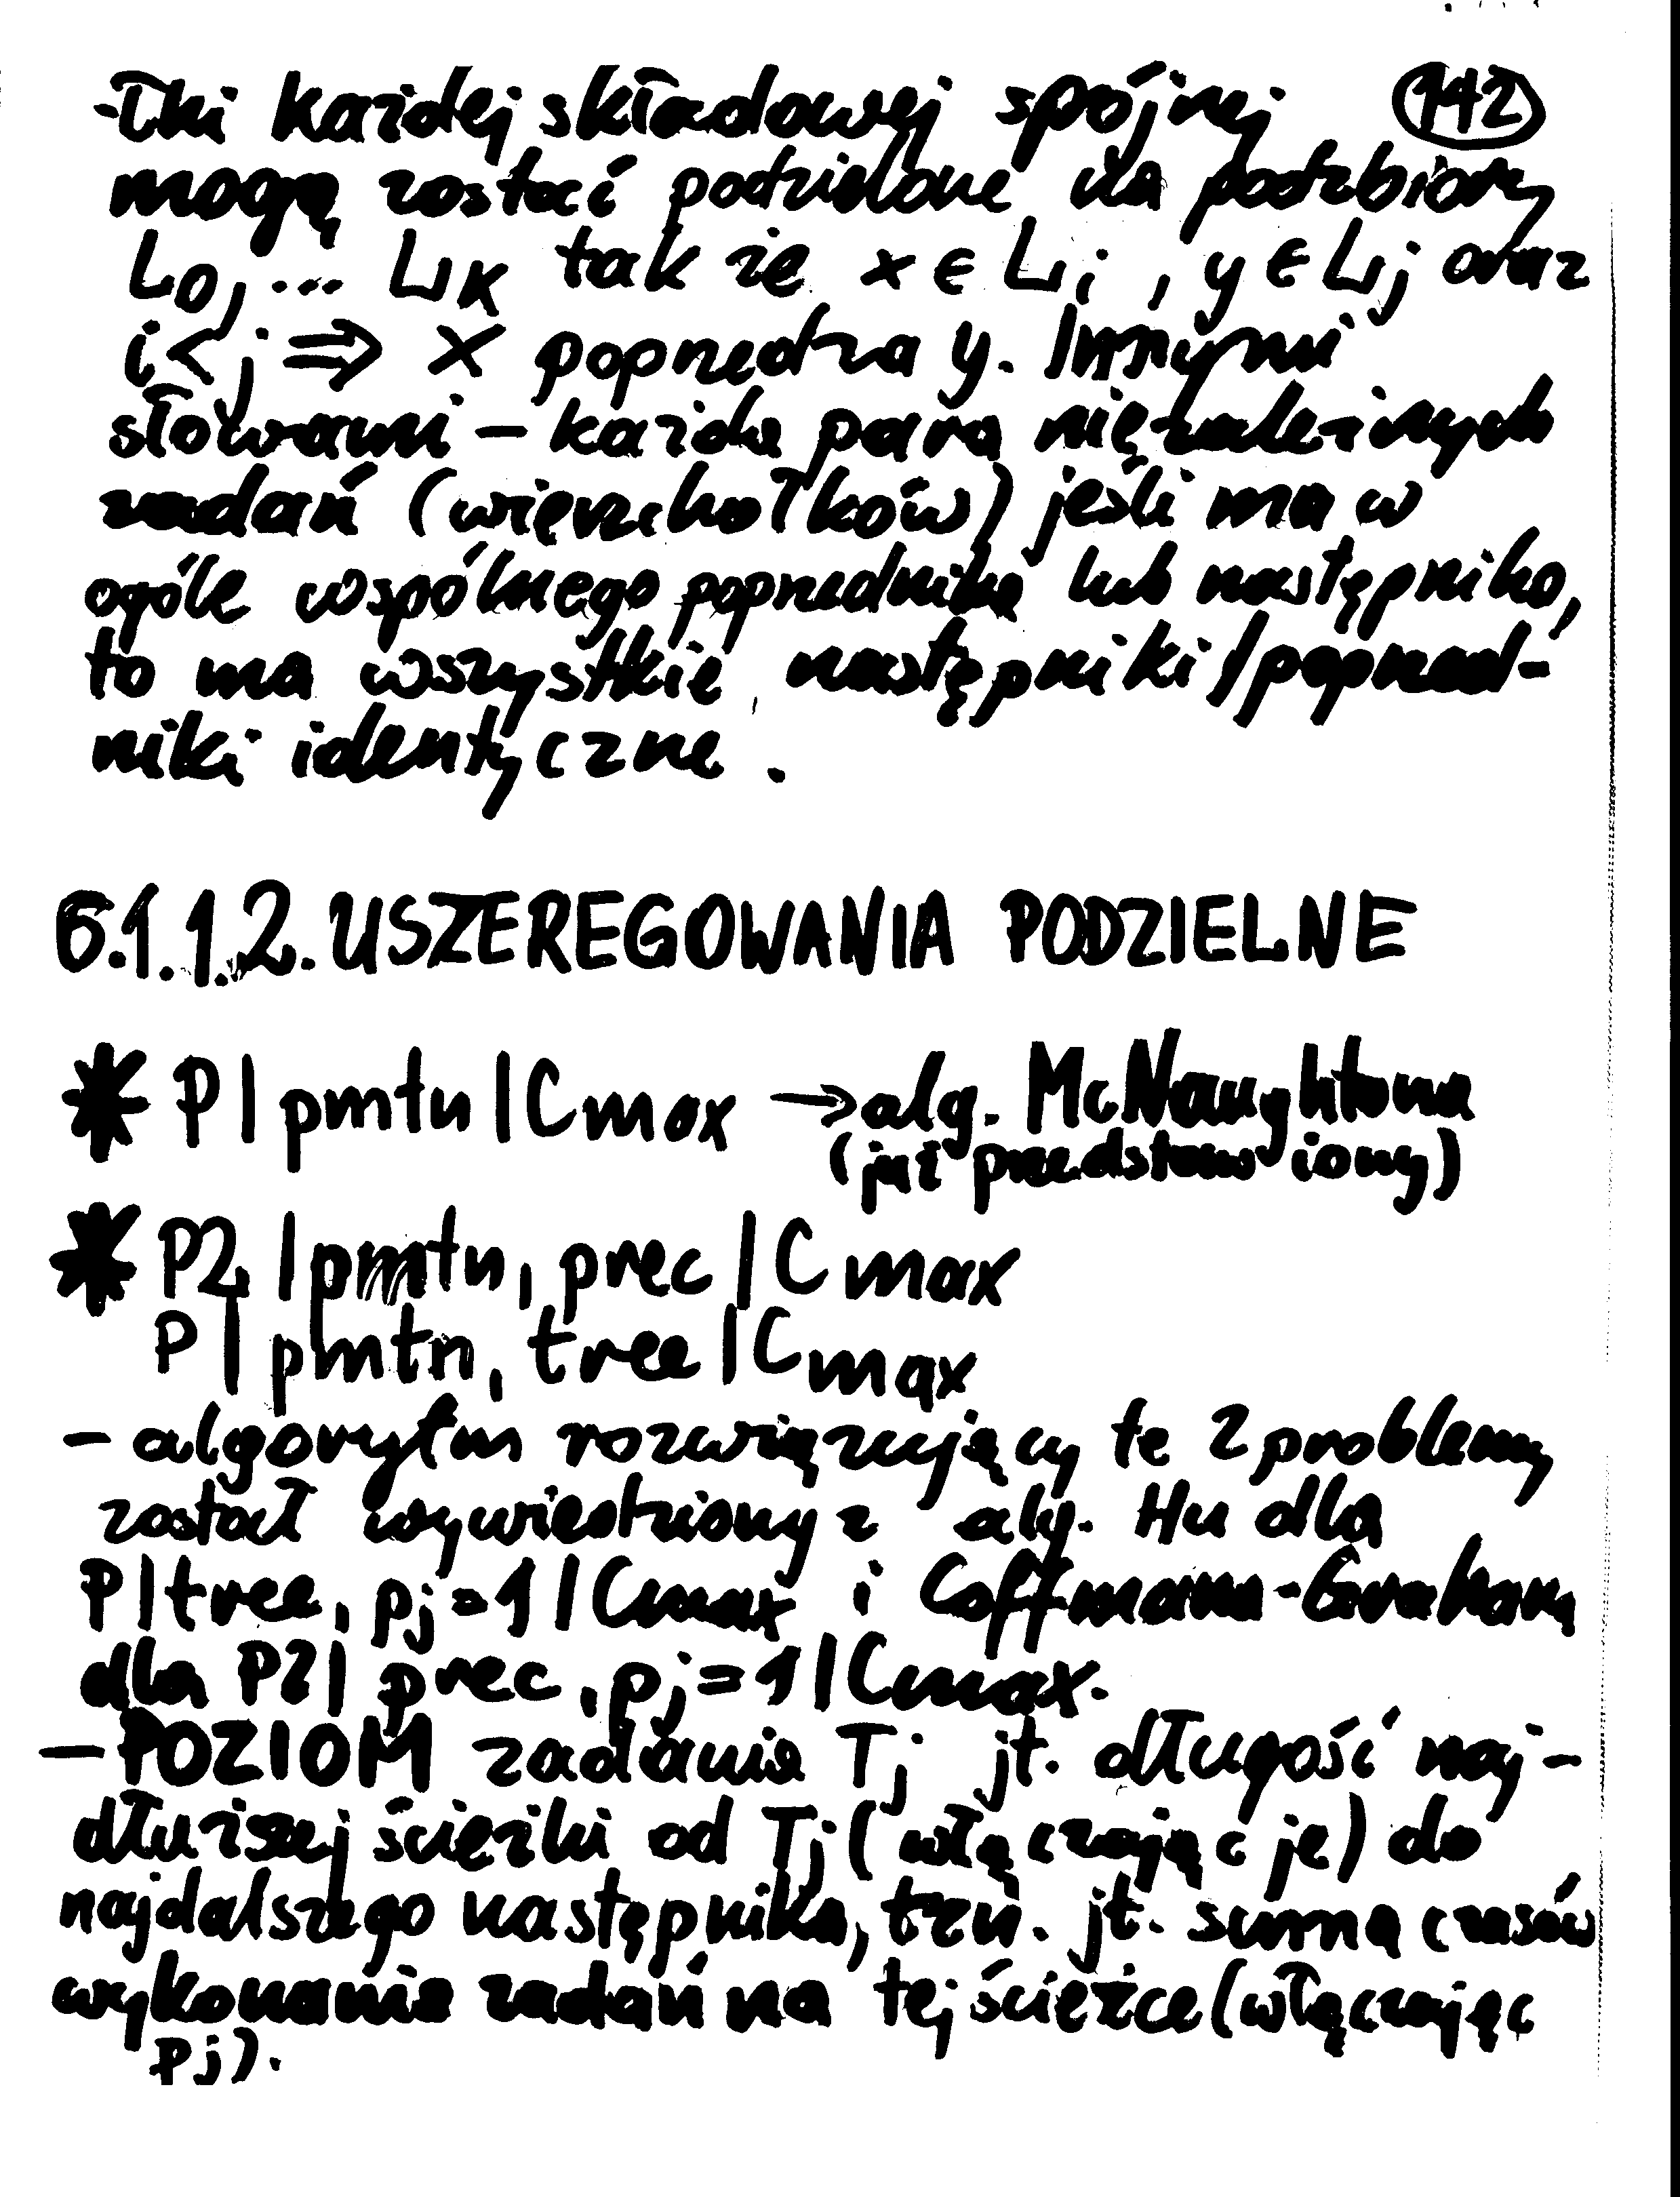 -łki każdej składowej spójnej 142
mogą zostać podzielone na podzbiory
L0, ... Lk tak że x ∈ Li , y ∈ Lj oraz
i < j ⇒ x poprzedza y. Innymi
słowami - każda para niezależnych
zadań (wierzchołków) jeśli ma w
ogóle wspólnego poprzednika lub następnika,
to ma wszystkie następniki/poprzed-
niki identyczne.
6.1.1.2. USZEREGOWANIA PODZIELNE
* P | pmtn | Cmax → alg. McNaughtona
(już przedstawiony)
* P2 | pmtn, prec | Cmax
P | pmtn, tree | Cmax
- algorytm rozwiązujący te 2 problemy
został wywiedziony z alg. Hu dla
P | tree, pj = 1 | Cmax i Coffmana-Grahama
dla P2 | prec, pj = 1 | Cmax.
- POZIOM zadania Tj jt. długość naj-
dłuższej ścieżki od Tj (włączając je) do
najdalszego następnika, tzn. jt. sumą czasów
wykonania zadań na tej ścieżce (włączając
pj).